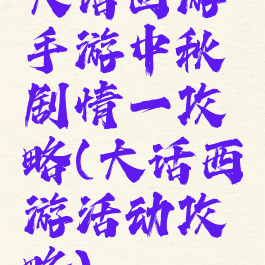 大话西游
手游中秋
剧情一攻
略(大话西
游活动攻
略)